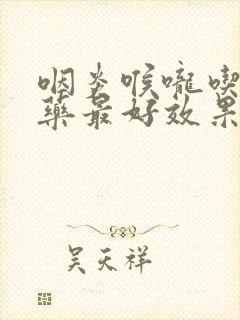 咽炎喉嚨喫
藥最好效果
吴天祥